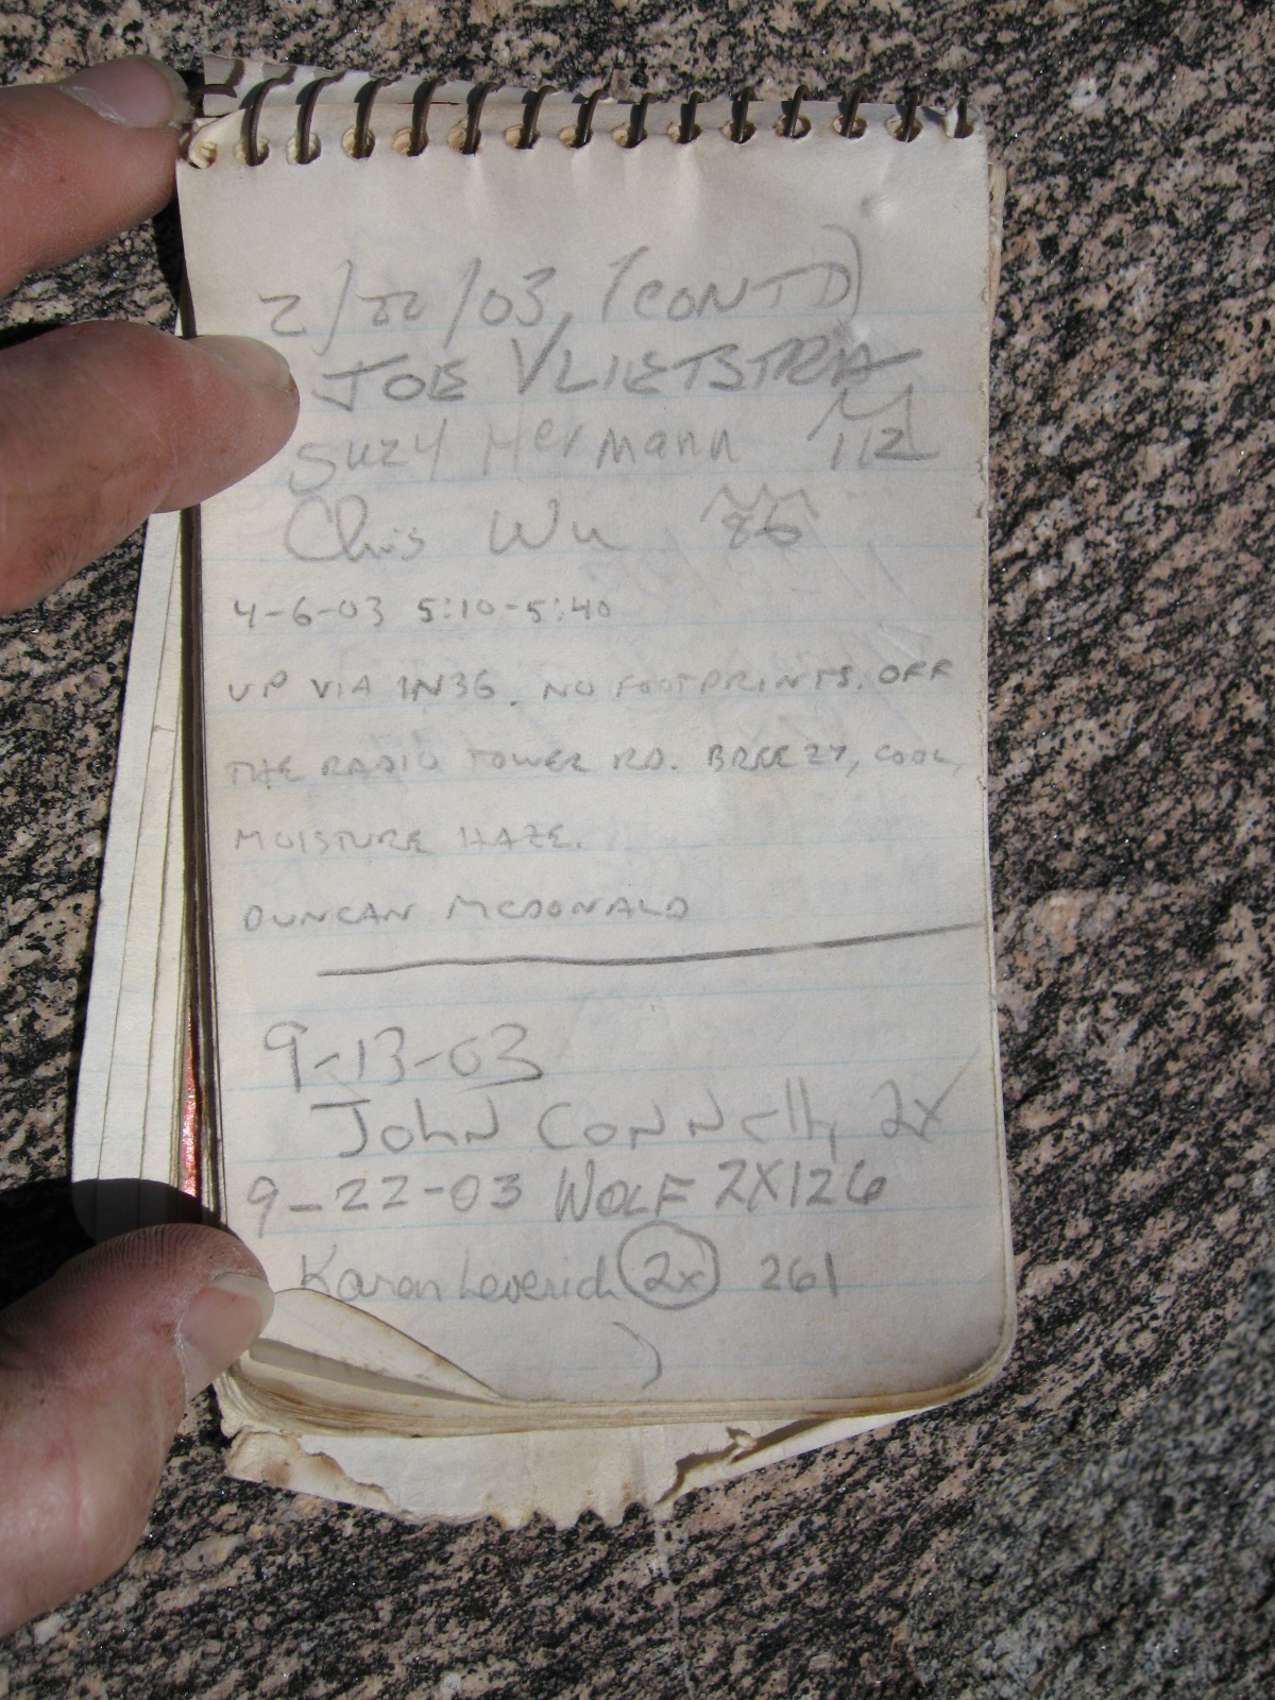 2/22/03 (CONT'D)
JOE VLIETSTRA
Suzy Hermann 112
Chris Wu 76
4-6-03 5:10-5:40
UP VIA 1N36. NO FOOTPRINTS. OFF
THE RADIO TOWER RD. BREEZY, COOL,
MOISTURE HAZE.
DUNCAN MCDONALD
9-13-03
JOHN CONNElly 2x
9-22-03 WOLF 2X126
Karen Leverich 2x 261